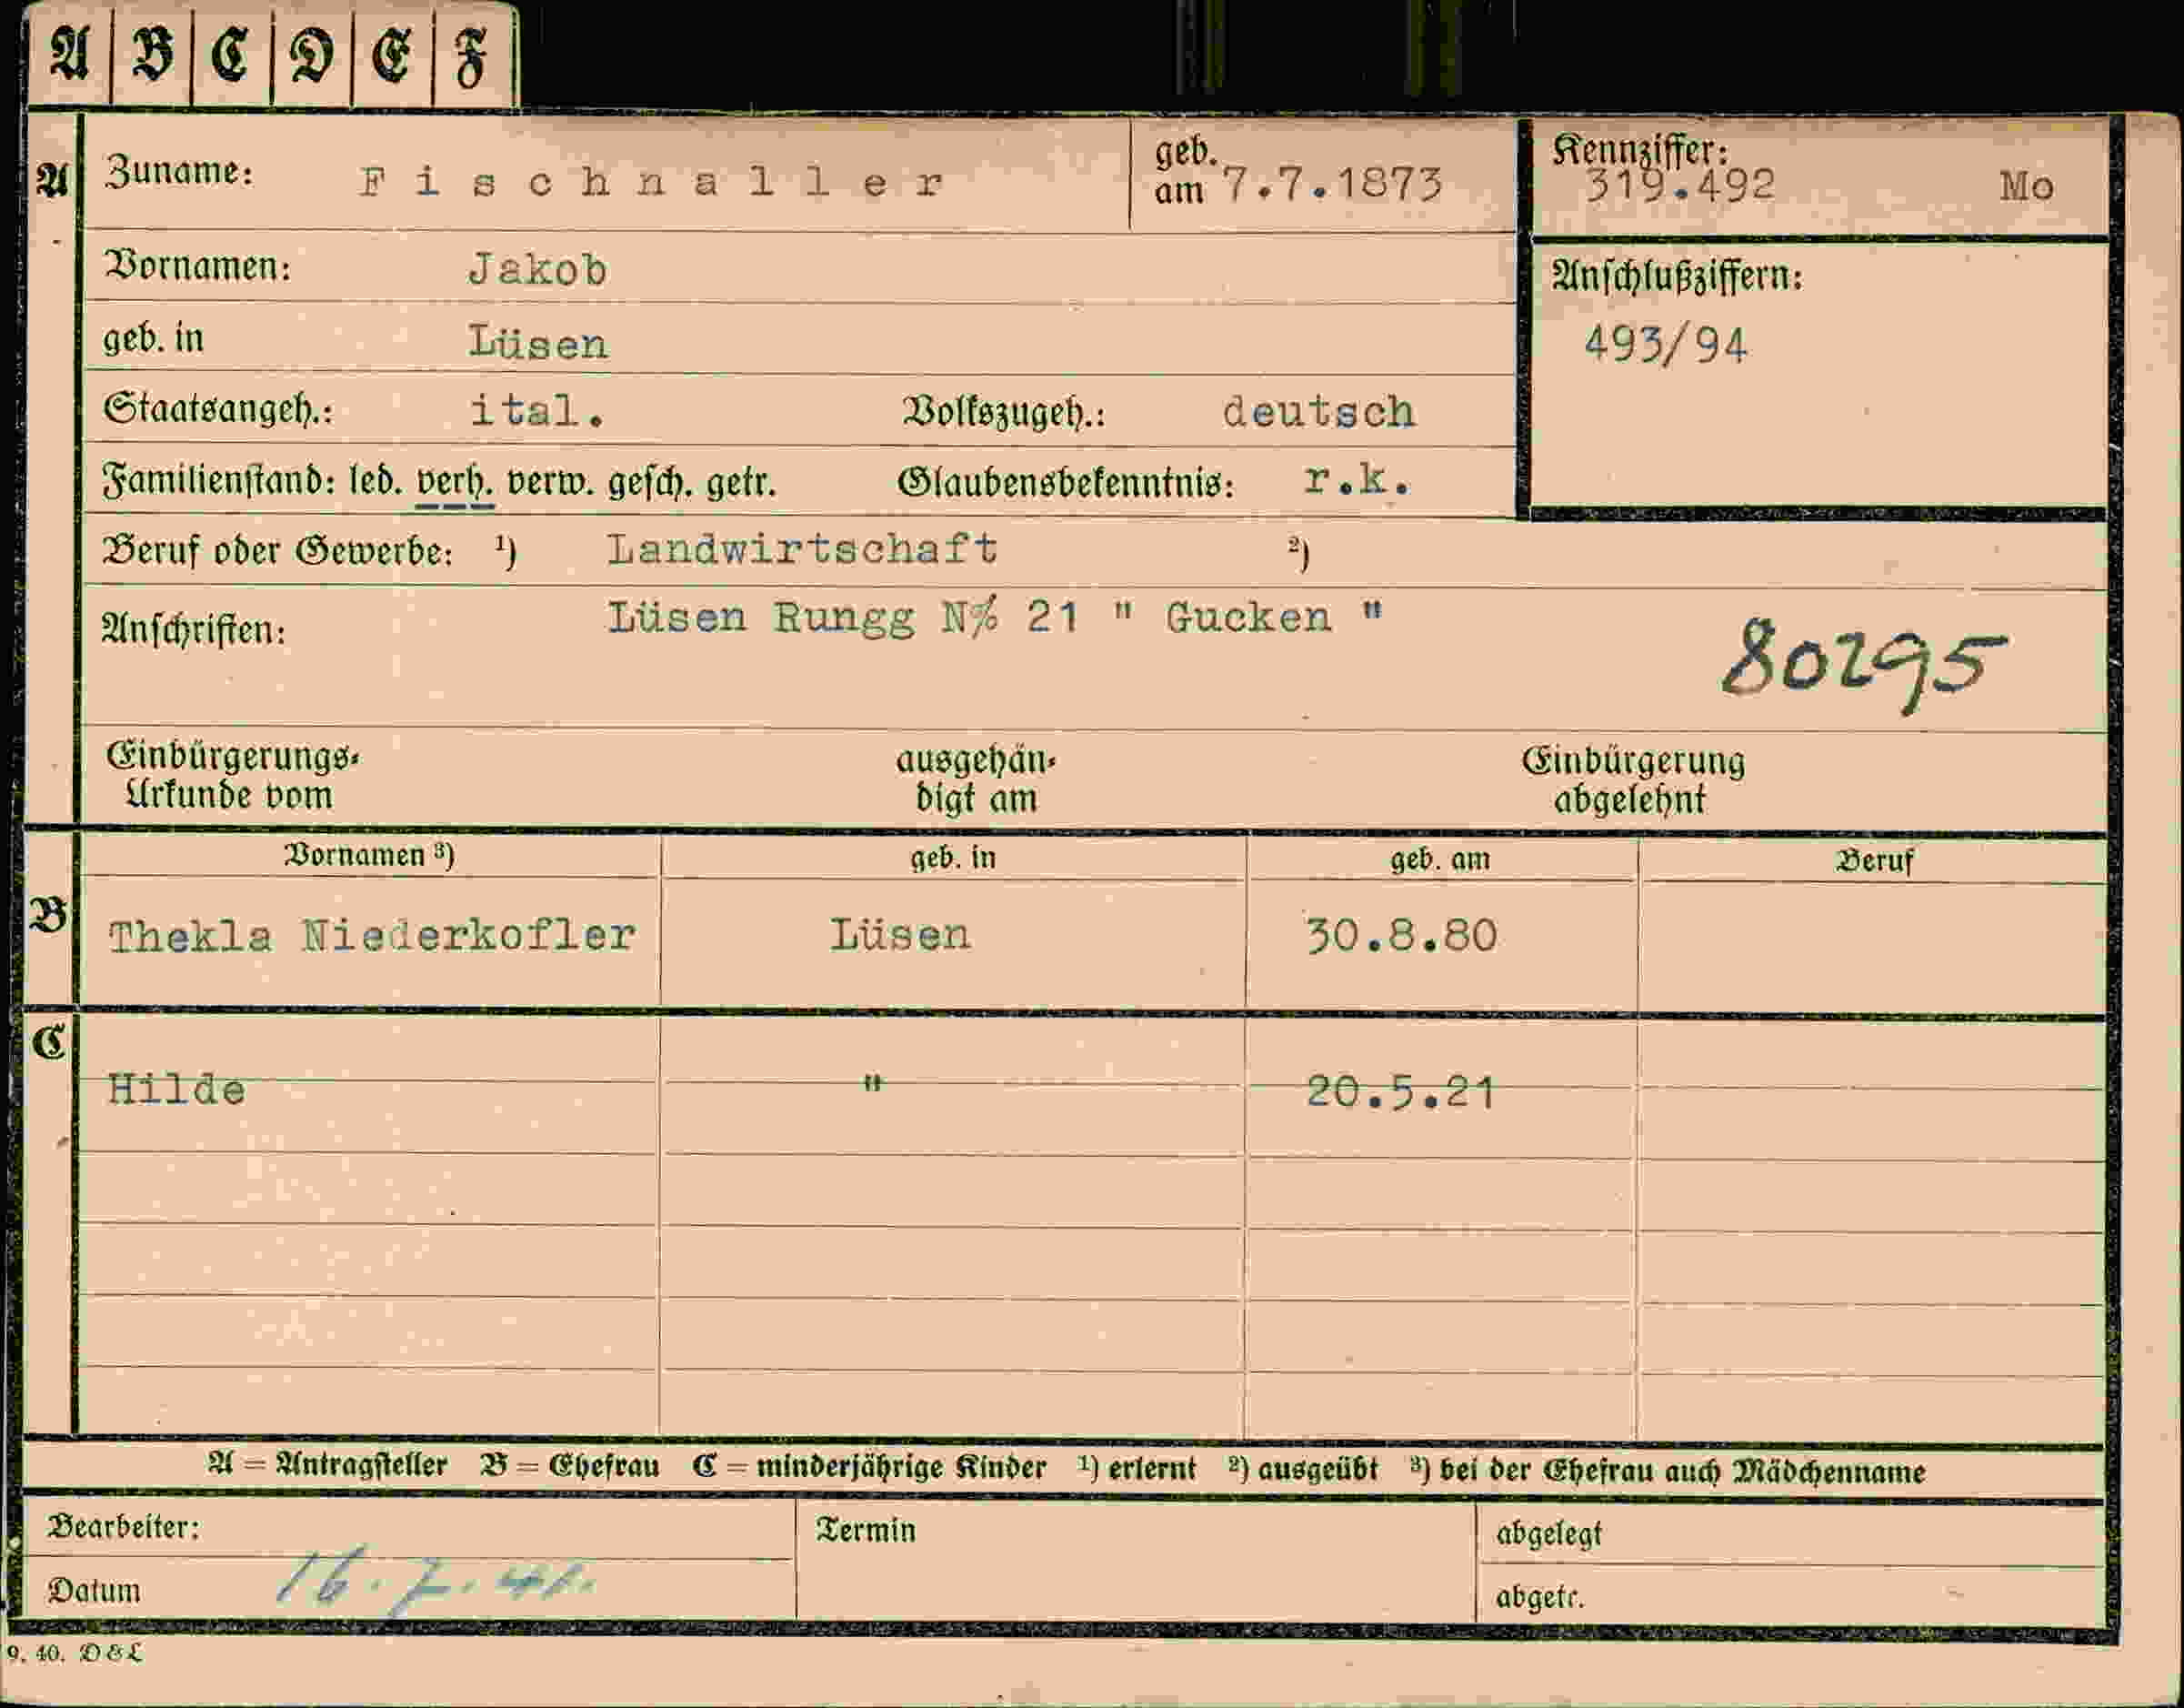 A B C D E F
A Zuname: Fischnaller geb. am 7.7.1873 Kennziffer: 319.492 Mo
Vornamen: Jakob
Anschlußziffern:
geb. in Lüsen 493/94
Staatsangeh.: ital. Volkszugeh.: deutsch
Familienstand: led. verh. verw. gesch. getr. Glaubensbekenntnis: r.k.
Beruf oder Gewerbe: 1) Landwirtschaft 2)
Anschriften: Lüsen Rungg N% 21 " Gucken "
80295
Einbürgerungs-
Urkunde vom
ausgehän-
digt am
Einbürgerung
abgelehnt
Vornamen 3) geb. in geb. am Beruf
B Thekla Niederkofler Lüsen 30.8.80
C
Hilde " 20.5.21
A = Antragsteller B = Ehefrau C = minderjährige Kinder 1) erlernt 2) ausgeübt 3) bei der Ehefrau auch Mädchenname
Bearbeiter: Termin abgelegt
Datum 16.7.41. abgetr.
9. 40. D & L